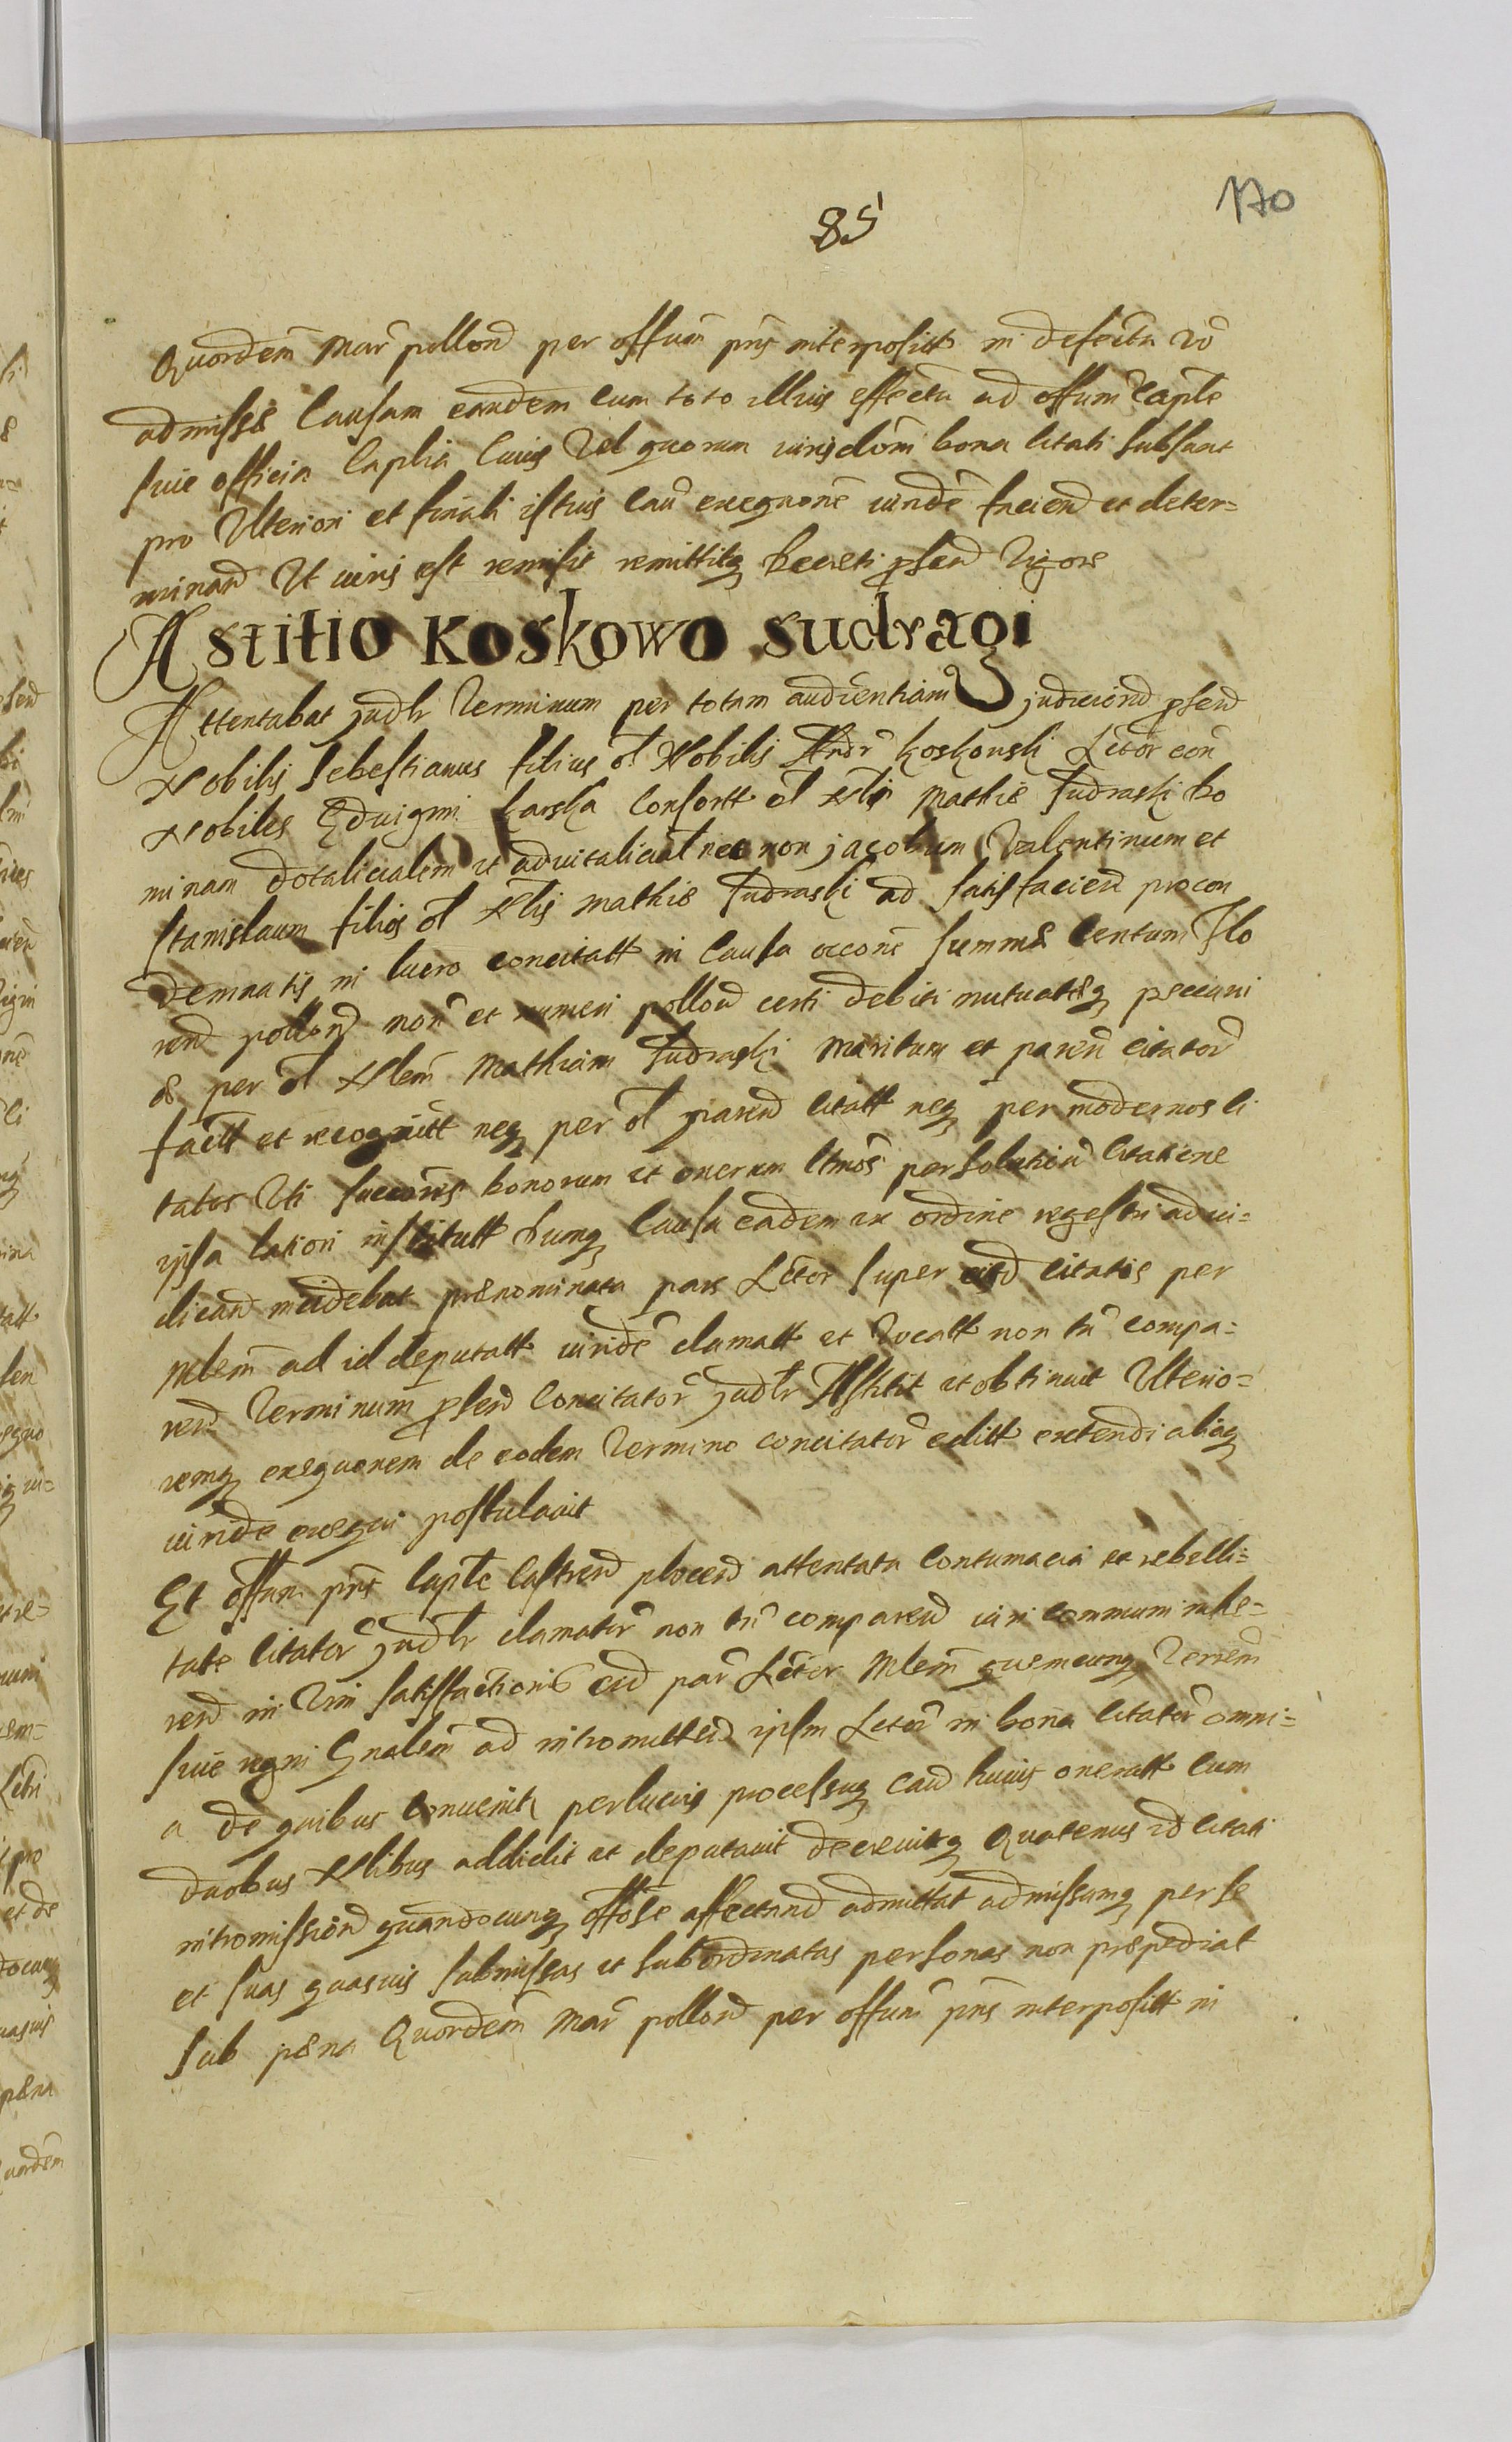 85
170
Quordem̃ mar̃ pollond per offum̃ pns̃ interpositt in defectu vo
admissæ Causam eandem cum toto illius effectu ad offum Captle
sive officia Captlia Cuius Vel quorum iurisdom̃ bona citati subsunt
pro Ulteriori et finali istius Cau exequone iuride faciend et deter=
minand Ut iuris est remisit remittitq decreti p̃send Vigore
Astitio Koskowo sudragi
Attentabat judlr Terminum per totam audientiam judiciond p̃send
Nobilis Sebestianus filius ol Nobilis Andr Koskowski Lctor con
Nobiles Edvigim Karska Consortt ol Nlis Mathiæ Sudraski Do
minam dotalicialem et aduitalicial nec non jacobum Valentinum et
Stanislaum filios ol Nlis Mathiæ Sudraski ad satisfaciend pro con
demnatis in lucro concitatt in Causa occone summæ Centum Flo
rend pollond mon et numeri pollond certi debiti mutuatæq pecuni
æ per ol Nlem Mathiam Sudraski Maritum et paren citator
factt et recognitt neq per ol parend citatt neq per modernos ci
tatos Uti succores bonorum et onerum ltmos persolutioñ Citatione
ipsa latiori institutt dumq Causa eadem ex ordine regestri ad iu=
dicand incidebat prænominata pars Lctor super eisd citatis per
Mlem ad id deputatt iuride clamatt et vocatt non tñ compa=
rend Terminum p̃send Concitator judlr Astitit et obtinuit Ulterio=
remq exequonem de eodem Termino concitator editt extendi aliaq
iuride exequi postulavit
Et offum pns Captle Castrend plocend attentata Contumacia et rebelli=
tate Citator judlr clamator non tñ comparend iuri communi inhe=
rend in Vim satisfactionis eid par Lctor Mlem quemcunq Terrem
sive regni Gnalem ad intromittend ipsm Lctor in bona Citator omni=
a de quibus convenit perlucris processuq caud huius oneratt cum
duobus Nlibus addidit et deputavit decrevitq Quatenus id citati
intromissiond quandocunq offose affectand admittat admissamq per se
et suas quasvis submissas et subordinatas personas non præpediat
sub pæna Quordem̃ mar̃ pollond per offum̃ pns̃ interpositt in